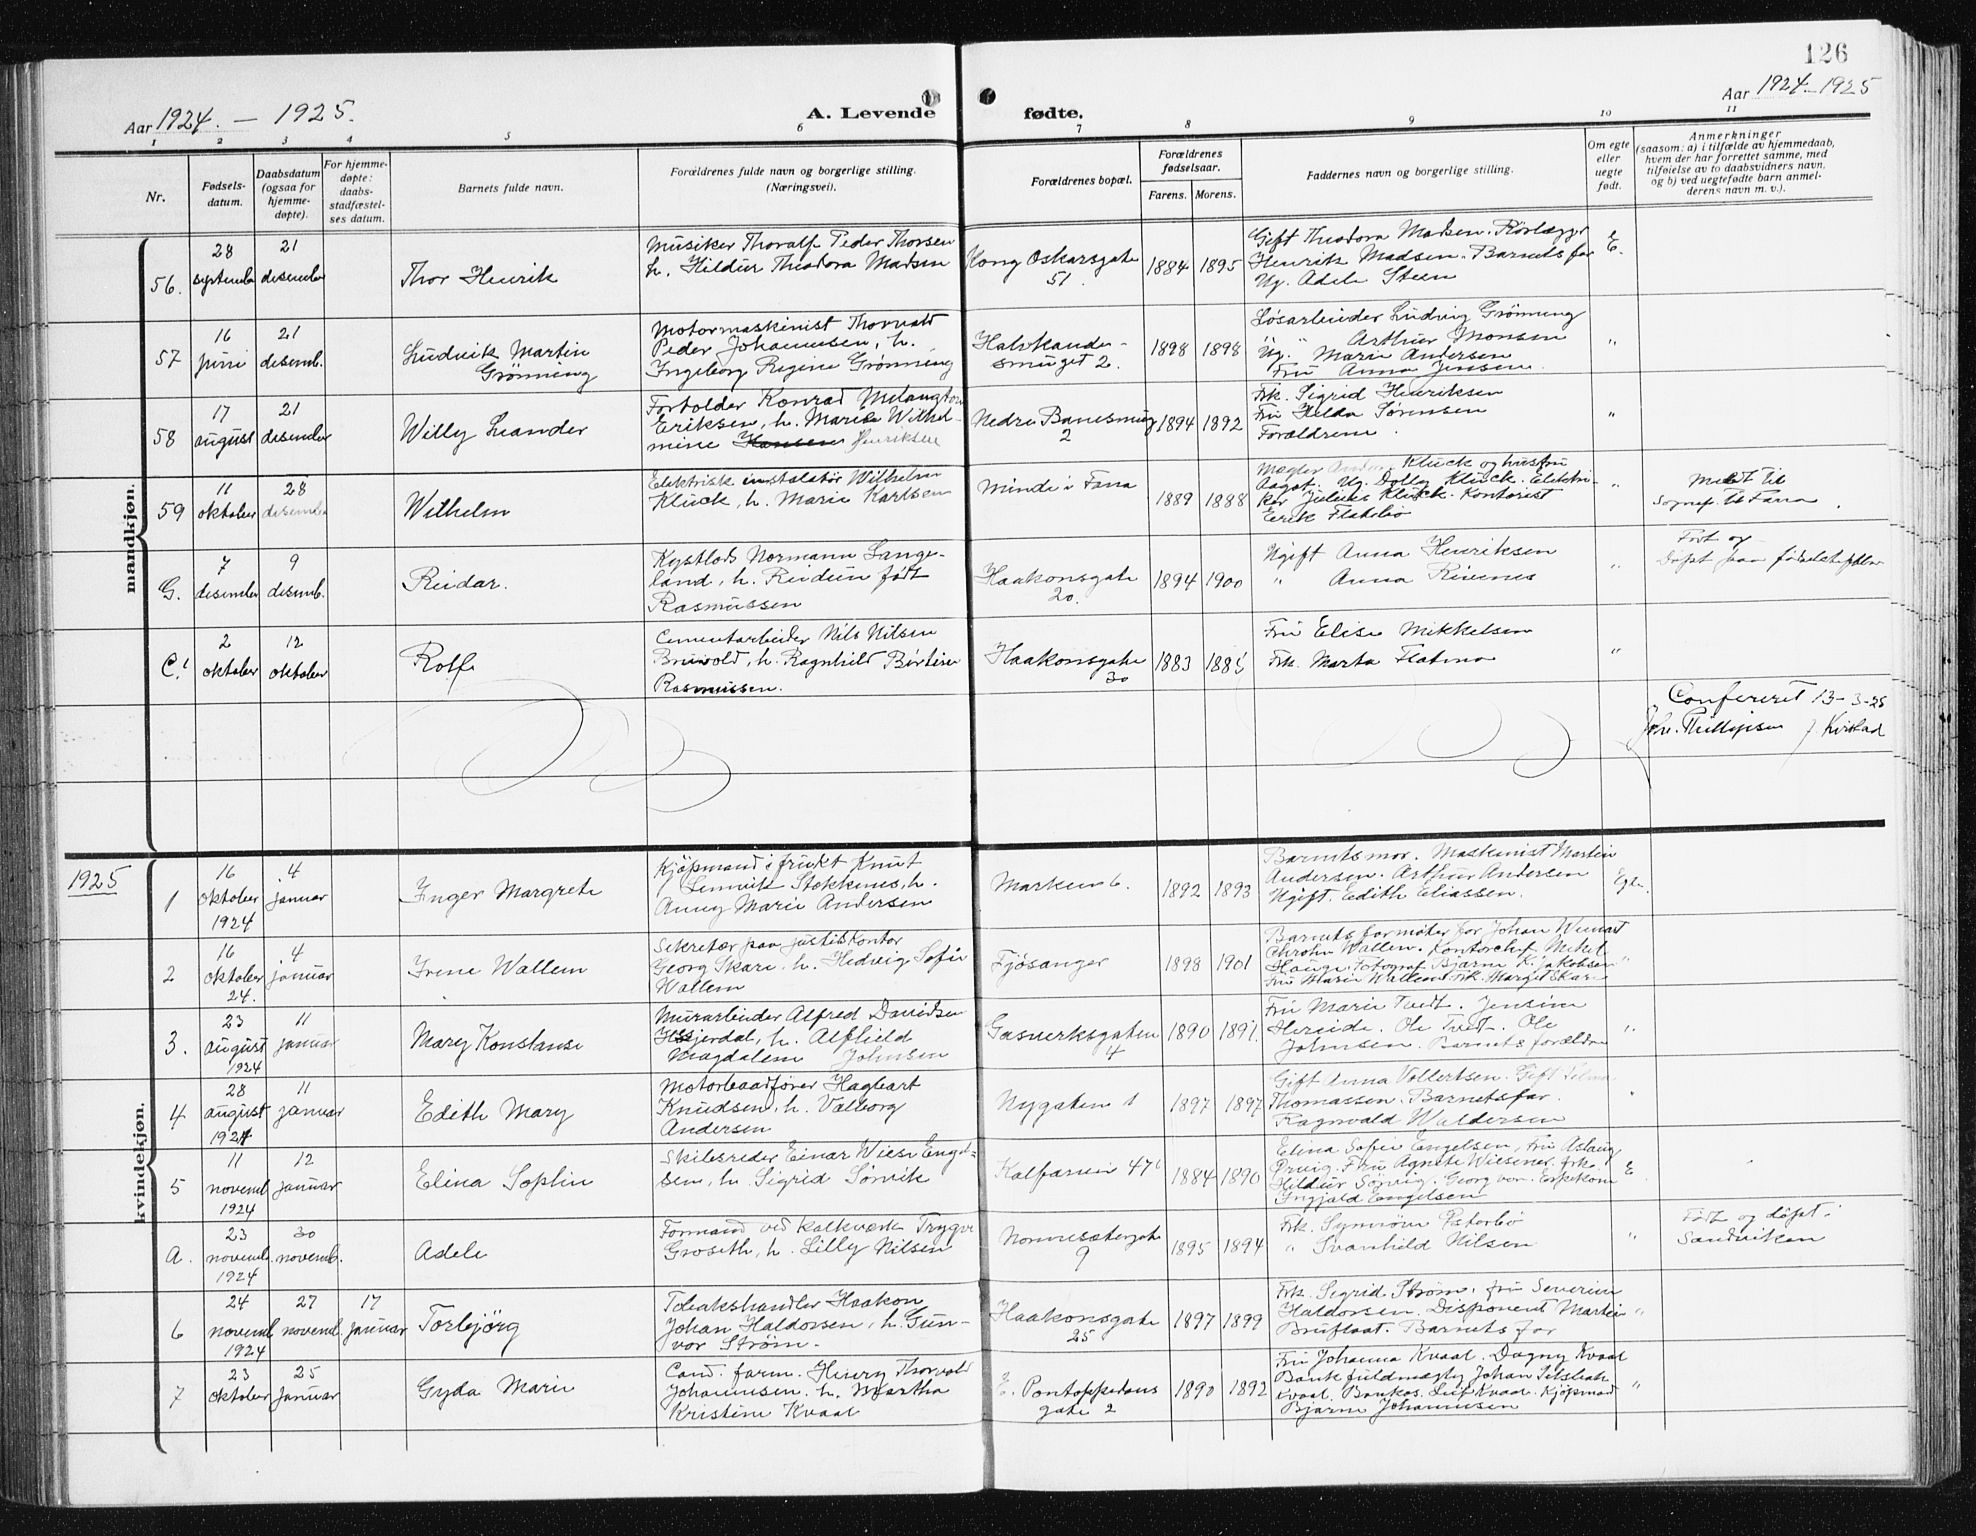 126
Aar 1924. — 1925.
A. Levende fødte.
Aar 1924-1925
1 2 3 4 5 6 7 8 9 10 11
Nr.
Fødsels-
datum.
Daabsdatum
(ogsaa for
hjemme-
døpte).
For hjemme-
døpte:
daabs-
stadfæstel-
ses datum.
Barnets fulde navn.
Forældrenes fulde navn og borgerlige stilling.
(Næringsvei).
Forældrenes bopæl.
Forældrenes
fødselsaar.
Farens. Morens.
Faddernes navn og borgerlige stilling.
Om egte
eller
uegte
født.
Anmerkninger
(saasom: a) i tilfælde av hjemmedaab,
hvem der har forrettet samme, med
tilføielse av to daabsvidners navn.
og b) ved uegtefødte barn anmel-
derens navn m. v.).
mandkjøn.
56.
28
september
21
desember
Thor Henrik
Musiker Thoralf Peder Thorsen
h. Hildur Theodora Madsen
Kong Oskarsgate
51.
1884 1895
Gift Theodora Madsen. Rørlægger
Henrik Madsen. Barnets far
Ug. Adele Steen
E.
57
16
juni
21
desemb.
Ludvik Martin
Grönneng
Motormaskinist Thorvald
Peder Johannesen, h.
Ingeborg Regine Grönneng
Halvkande-
smuget 2.
1898 1898
Løsarbeider Ludvig Grönneng
" Arthur Monsen
Ug. Marie Andersen
Fru Anna Jensen.
"
58
17
august
21
desember
Willy Leander
Forbolder Konrad Melangton
Eriksen, h. Marie Wilhel-
mine Hansen Henriksen
Nedre Banesmug
2
1894 1892
Frk. Sigrid Henriksen
Fru Hilda Sørensen
Forældrene.
"
59
11
oktober
28
desember
Wilhelm
Elektrisk instalatør Wilhelm
Klück, h. Marie Karlsen
Minde i Fana
1889 1888
Mægler Klück og husfru
Aagot. Ug. Dolly Klück. Elektri-
ker Julius Klück. Kontorist
Eerik Flatebø
"
Meldt til
Sognep. til Fana.
G.
7
desember
9
desemb.
Reidar.
Kystlods Normann Lange-
land, h. Reidun født
Rasmussen
Haakonsgate
20.
1894 1900
Ugift Anna Henriksen
" Anna Risnes
"
Født og
Døpt paa fødselsstiftelsen
C!
2
oktober
12
oktober
Rolf
Cementarbeider Nils Nilsen
Bruvold, h. Ragnhild Børtine
Rasmussen.
Haakonsgate
30
1883 1885
Fru Elise Mikkelsen
Frk. Marta Flatmo
"
Confereret 13-3-25
1925
kvindekjøn.
1
16
oktober
1924
4
januar
Inger Margrete
Kjøpmand i frukt Knut
Lemvik Stokkenes, h.
Anny Marie Andersen
Marken 6.
1892 1893
Barnets mor. Maskinist Martin
Andersen. Arthur Andersen
Ugift. Edith Eliassen.
Egte.
2
16
oktober
24.
4
januar
Irene Wallem
Sekretær paa justiskontor
Georg Skare, h. Hedvig Sofie
Wallem
Fjösanger
1898 1901
Barnets formødre for Johan
Chrohn Wallem. Kontorchef Mikal
Hauge. Fotograf Bjarne K. Jakobsen
Fru Marie Wallem. Frk. Margit Skare
"
3.
23
august
1924
11
januar
Mary Konstanse
Murarbeider Alfred Davidsen
Hesjerdal, h. Alfhild
Magdalene Johnsen
Gasverksgaten
4
1890 1891.
Fru Marie Tvedt. Jensine
Hereide. Ole Tvedt. Ole
Johnsen. Barnets forældre
"
4
28
august
1924
11
januar
Edith Mary
Motorbaadfører Hagbart
Knudsen, h. Valborg
Andersen
Nygaten 1
1897 1897
Gift Anna Vollertsen. Gift Selma
Thomassen. Barnets far.
Ragnvald Waldersen
"
5
11
novemb
1924
12
januar
Elina Sophie
Skibsreder Einar Wiese Engel-
sen, h. Sigrid Sörvik
Kalfarvei 47 c
1884 1890
Elina Sofie Engelsen, fru Aslaug
Prvig. Fru Agnete Wiesener. frk.
Hildur Sörvig. Georg von Erpekom
Ingjald Engelsen
E.
a.
23
novemb.
1924
30
novemb.
Adele
Formand ved kalkverk Trygve
Groseth, h. Lilly Nilsen
Nonnesætergate
9
1895 1894
Frk. Synnöve Østerbö
" Svanhild Nilsen
"
Født og døpt i
Sandviken
6
24
novemb
1924
27
novemb.
17
januar
Torbjörg
Tobakshandler Haakon
Johan Haldorsen, h. Gun-
vor Ström.
Haakonsgate
25
1897 1899
Frk. Sigrid Ström. fru Severine
Haldorsen. Disponent Martin
Bruflaat. Barnets far
"
7
23
oktober
25
Januar
Gyda Marie
Cand. farm. Henry Thorvald
Johannesen. h. Martha
Kristine Kvaal
E. Pontoppidans
gate 2
1890 1892
Fru Johanna Kvaal. Dagny Kvaal
Bankfuldmægtig Johan
Kvaal. Bankas. Leif Kvaal. Kjöpmand
Bjarne Johannesen
"